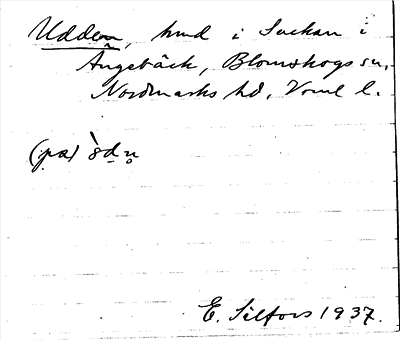 Udden, hmd i Sockan i
Ängebäck, Blomskogs sn,
Nordmarks hd, Vrml l.
(pa) `ɷdn̥
E. Silfors 1937.